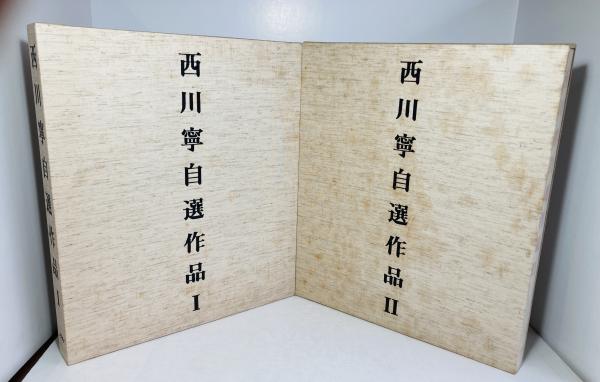 西川寧自選作品 I
西川寧自選作品 I
西川寧自選作品 II